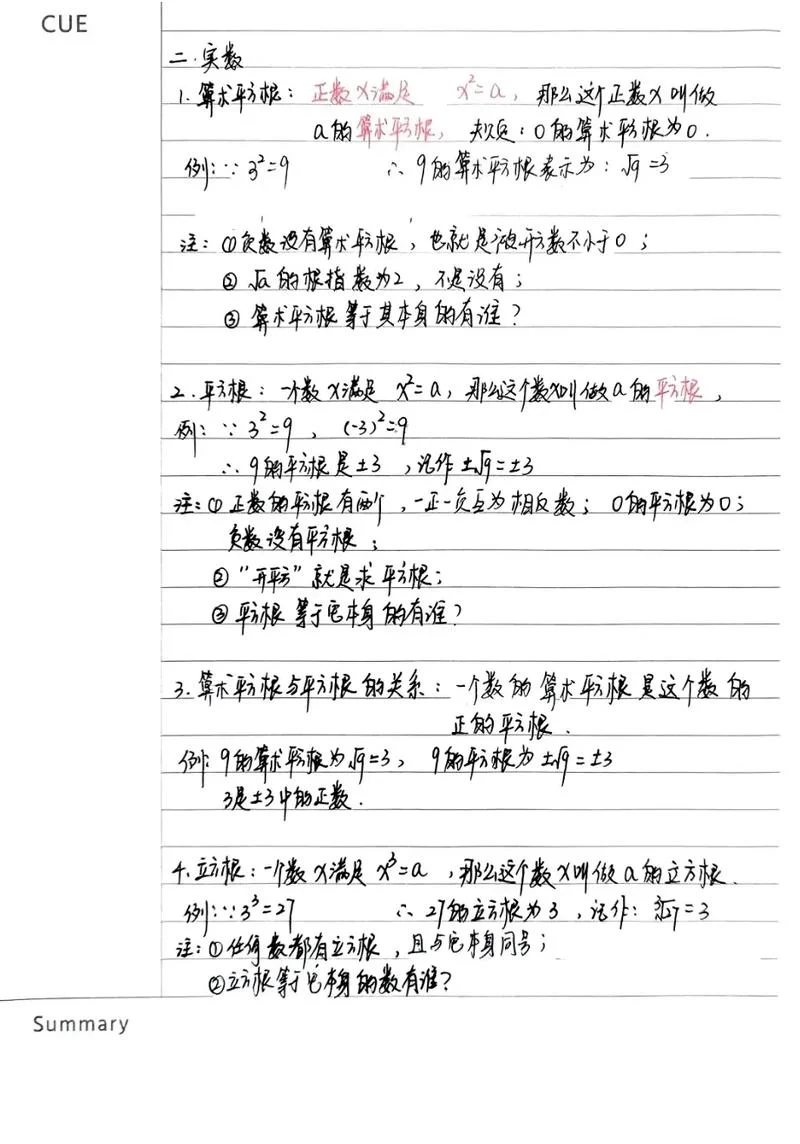 CUE
二.实数
1.算术平方根：正数x满足 x²=a，那么这个正数x叫做
a的算术平方根，规定：0的算术平方根为0.
例：∵ 3²=9 ∴ 9的算术平方根表示为：√9=3
注：①负数没有算术平方根，也就是被开方数不小于0；
② √a的根指数为2，不是没有；
③ 算术平方根等于其本身的有谁？
2.平方根：一个数x满足 x²=a，那么这个数x叫做a的平方根，
例：∵ 3²=9，(-3)²=9
∴ 9的平方根是±3，记作 ±√9=±3
注：① 正数的平方根有两个，一正一负互为相反数；0的平方根为0；
负数没有平方根；
② “开平方”就是求平方根；
③ 平方根等于它本身的有谁？
3.算术平方根与平方根的关系：一个数的算术平方根是这个数的
正的平方根.
例：9的算术平方根为√9=3，9的平方根为±√9=±3
3是±3中的正数.
4.立方根：一个数x满足 x³=a，那么这个数x叫做a的立方根.
例：∵3³=27 ∴ 27的立方根为3，记作：∛27=3
注：①任何数都有立方根，且与它本身同号；
②立方根等于它本身的数有谁？
Summary